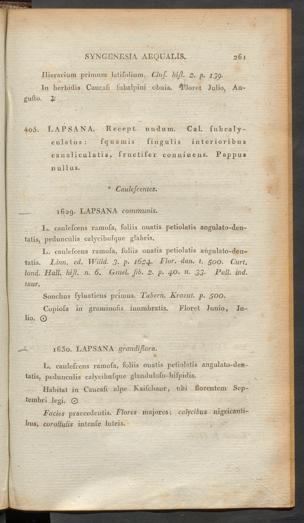 SYNGENESIA AEQUALIS. 261
Hieracium primum latifolium. Cluſ. hiſt. 2. p. 139.
In herbidis Caucaſi ſubalpini obuia. Floret Julio, Au-
guſto. ♃
405. LAPSANA. Recept. nudum. Cal. ſubcaly-
culatus: ſquamis ſingulis interioribus
canaliculatis, fructifer conniuens. Pappus
nullus.
* Cauleſcentes.
1629. LAPSANA communis.
L. cauleſcens ramoſa, foliis ouatis petiolatis angulato-den-
tatis, pedunculis calycibuſque glabris.
L. cauleſcens ramoſa, foliis ouatis petiolatis angulato-den-
tatis. Linn. ed. Willd. 3. p. 1624. Flor. dan. t. 500. Curt.
lond. Hall. hiſt. n. 6. Gmel. ſib. 2. p. 40. n. 33. Pall. ind.
taur.
Sonchus ſyluaticus primus. Tabern. Kraeut. p. 500.
Copioſa in graminoſis inumbratis. Floret Junio, Ju-
lio. ☉
1630. LAPSANA grandiflora.
L. cauleſcens ramoſa, foliis ouatis petiolatis angulato-den-
tatis, pedunculis calycibuſque glanduloſo-hiſpidis.
Habitat in Caucaſi alpe Kaiſchaur, ubi florentem Sep-
tembri legi. ☉
Facies praecedentis. Flores majores; calycibus nigricanti-
bus, corollulis intenſe luteis.